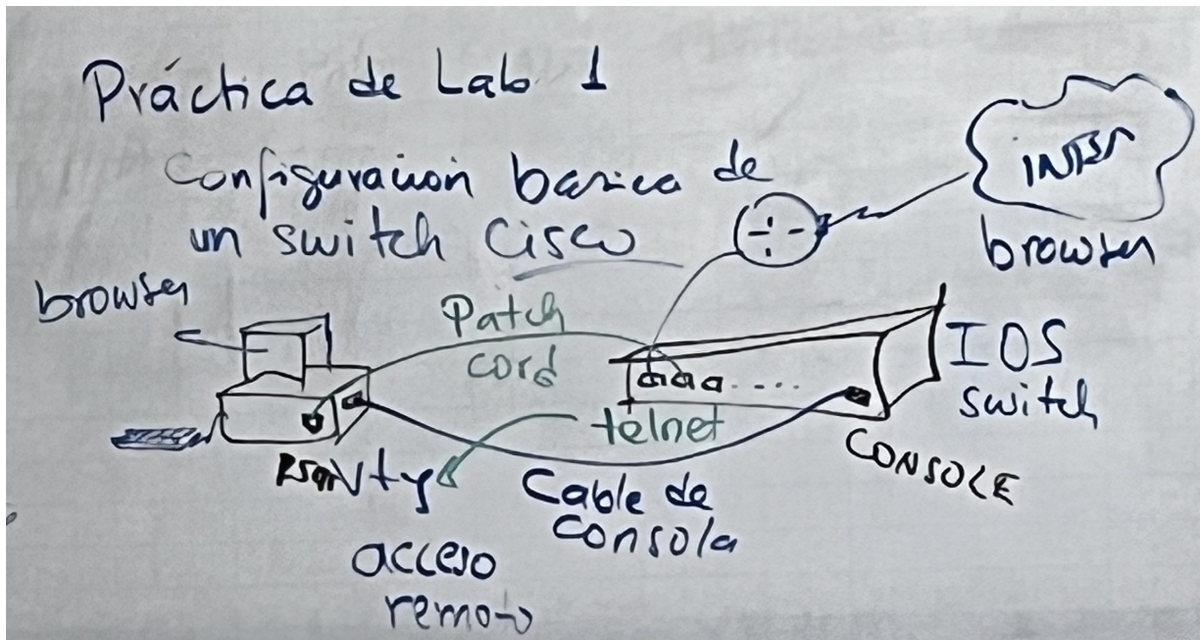 Práctica de Lab 1
Configuración basica de
un switch Cisco
browser
browser
Patch
cord
IOS
switch
telnet
CONSOLE
Vty
Cable de
consola
acceso
remoto